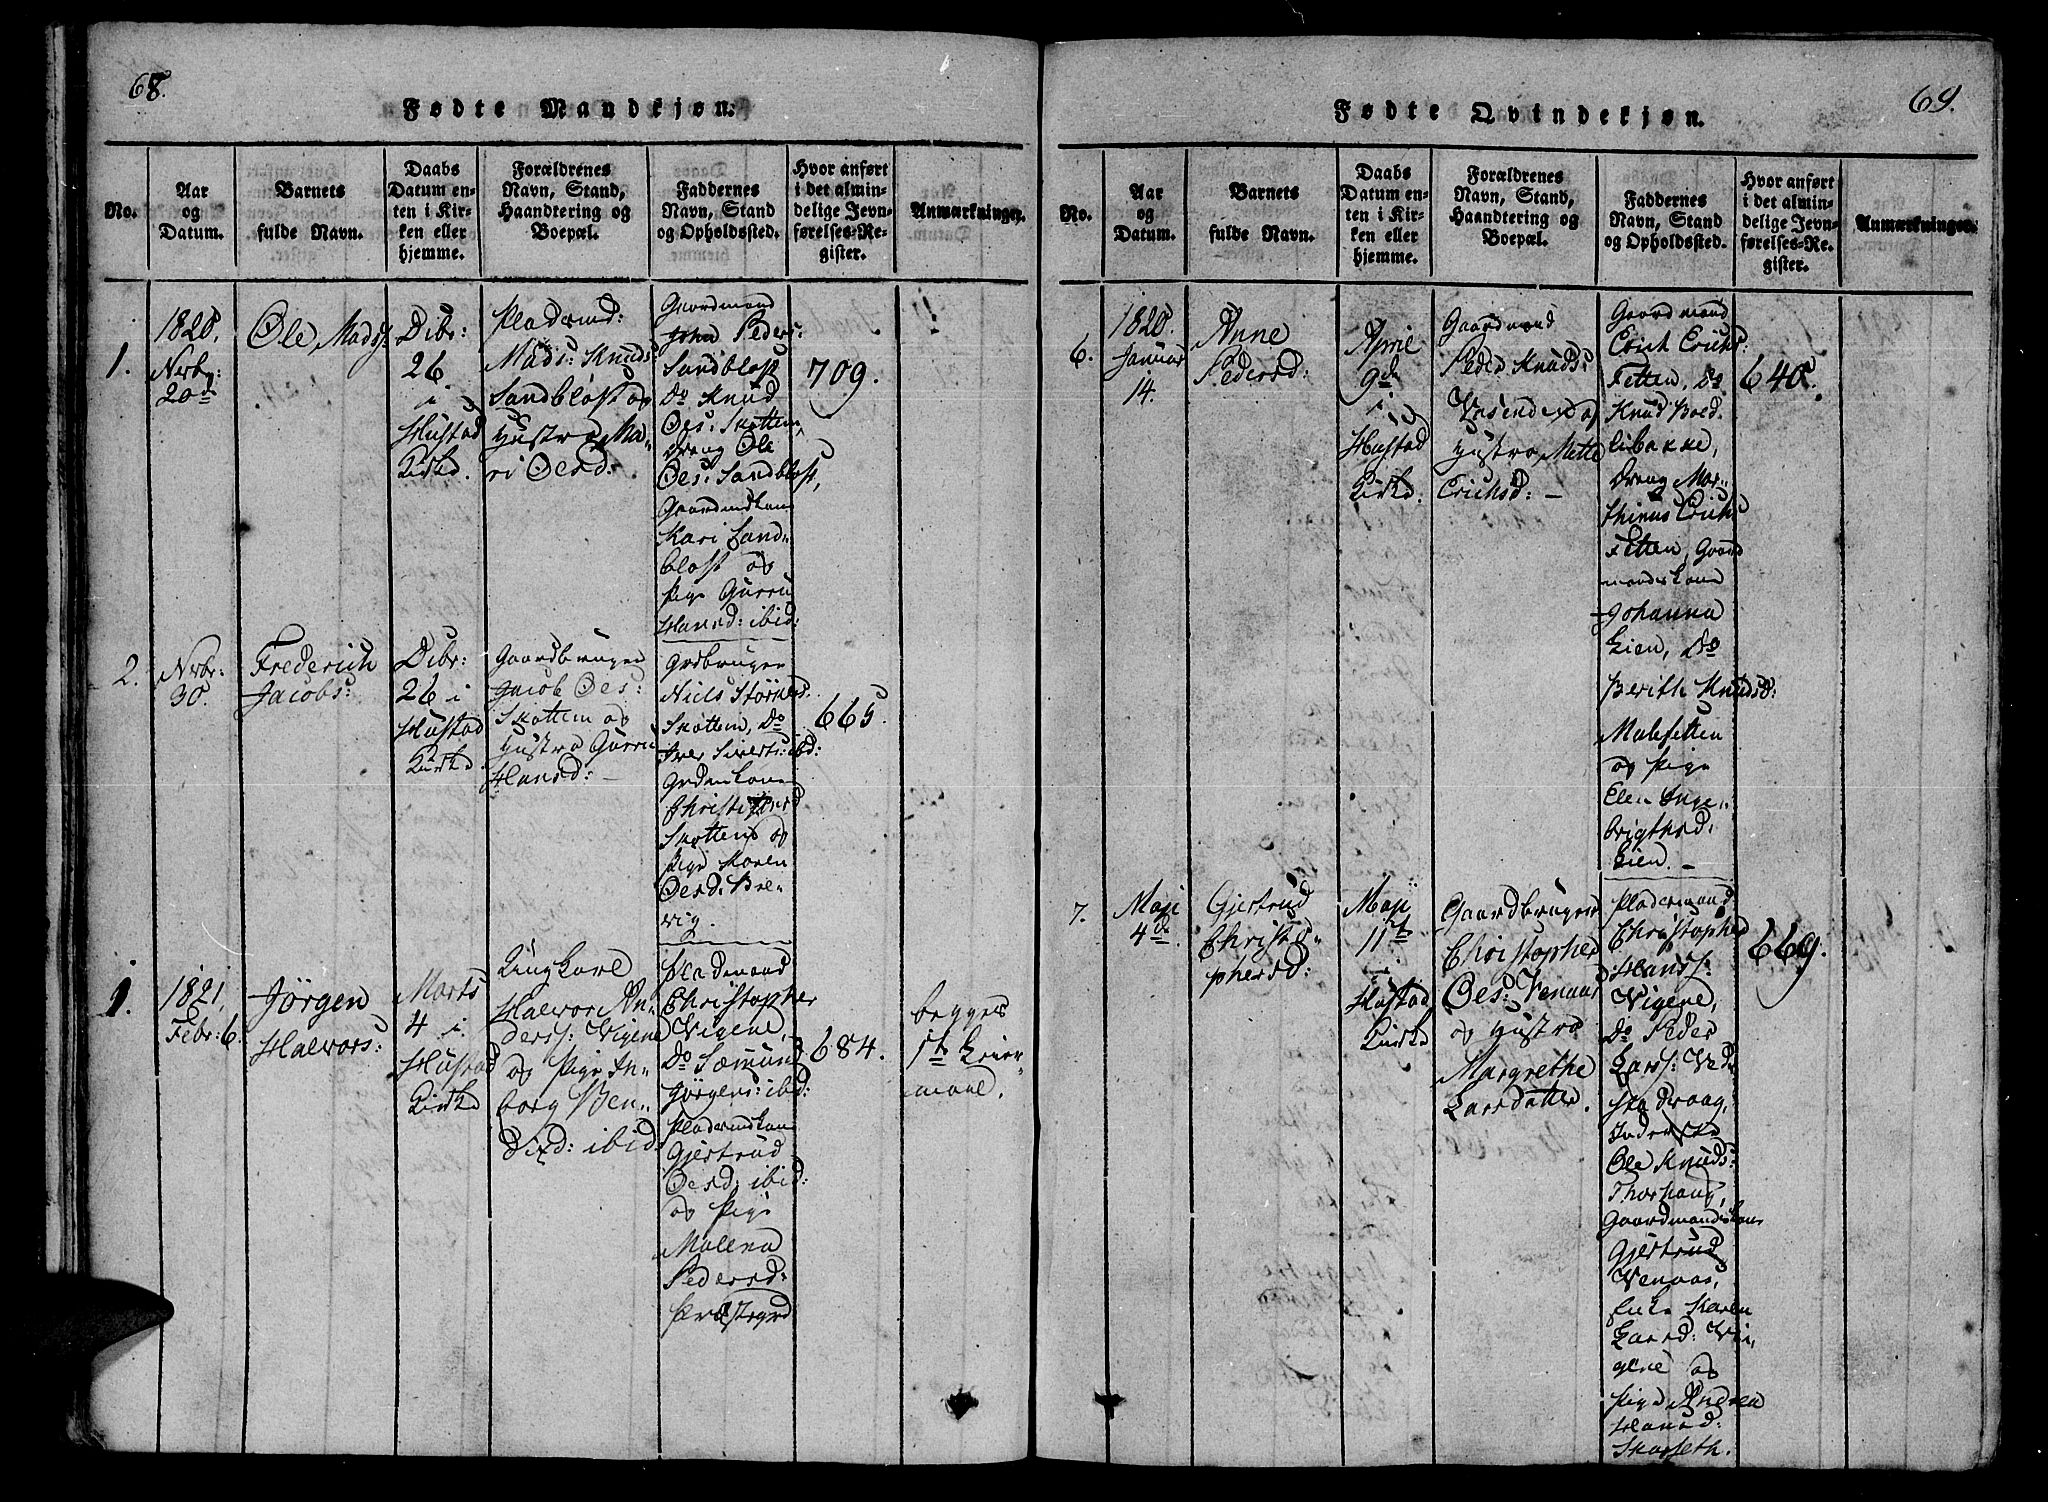 68.
Fødte Mandkjøn.
No.
Aar
og
Datum.
Barnets
fulde Navn.
Daabs
Datum en-
ten i Kir-
ken eller
hjemme.
Forældrenes
Navn, Stand,
Haandtering og
Boepæl.
Faddernes
Navn, Stand
og Opholdssted.
Hvor anført
i det almin-
delige Jevn-
førelses-Re-
gister.
Anmærkninger.
1.
1820.
Nvbr:
20de
Ole Mads:
Dcbr:
26.
i
Hustad
Kirke.
Pladsmd:
Mads: Knuds:
Sandbløst og
Hustro Ma-
ri Oesd:
Gaardmand
John Peders:
Sandblost
Do Knud
Oes: Skottem
Dreng Ole
Oes: Sandblost,
Gaardmdkone
Kari Sand-
blost og
Pige Gurru
Hansd: ibid:
709.
2.
Nvbr:
30.
Frederich
Jacobs:
Dcbr:
26 i
Hustad
Kirke.
Gaardbruger
Jacob Oes:
Skottem og
Hustro Gurru
Hansd: —
Grdbruger
Niels Størkers:
Skottem, Do
Iver Siverts: ibd:
Grdmkone
Skottem og
Pige Maren
Oesd: Bre-
vig.
665.
1.
1821,
Febr: 6.
Jørgen
Halvors:
Marts
4 i
Hustad
Kirke
Ungkarl
Halvor An-
derss: Vigene
og Pige In-
borg Ben-
dixd: ibid:
Pladsmand
Christopher
Vigene,
Do Sæmund
Jørgens: ibid:
Pladsmdkone
Gjertrud
Oesd: ibid:
og Pige
Malena
Pedersd:
Præstegrd
684.
begges
1ste Leier-
maal.
69.
Fødte Qvindekjøn.
No.
Aar
og
Datum.
Barnets
fulde Navn.
Daabs
Datum en-
ten i Kir-
ken eller
hjemme.
Forældrenes
Navn, Stand,
Haandtering og
Boepæl.
Faddernes
Navn, Stand
og Opholdssted.
Hvor anført
i det almin-
delige Jevn-
førelses-Re-
gister.
Anmærkninger.
6.
1820.
Januar
14.
Anne
Pedersd:
April
9de
i
Hustad
Kirke.
Gaardmand
Peder Knuds:
Hustro Mette
Erichsd: —
Gaardmand
Erich Erichs:
Fetten, Do
Knud Bold-
libakke,
Dreng Mar-
thinus Erichs:
Fetten, Gaard
mandskone
Johanna
Lien, Do
Berith Knudsd:
Malefetten
og Pige
Elen Inge-
brigthsd:
Lien. —
640.
7.
Maji
4de
Gjertrud
Christo-
phersd:
Maji
11te
i
Hustad
Kirke
Gaardbruger
Christopher
Oes: Venaas
og Hustro
Margrethe
Larsdatter.
Pladsmand
Christopher
Hans:
Vigene,
Do Peder
Larss:
Ole Knuds:
Thorhaug,
Gaardmandskone
Gjertrud
Venaas,
Enke Karen
Larsd: Vi-
gene og
Pige Andrea
Hansd:
Skarseth.
669.